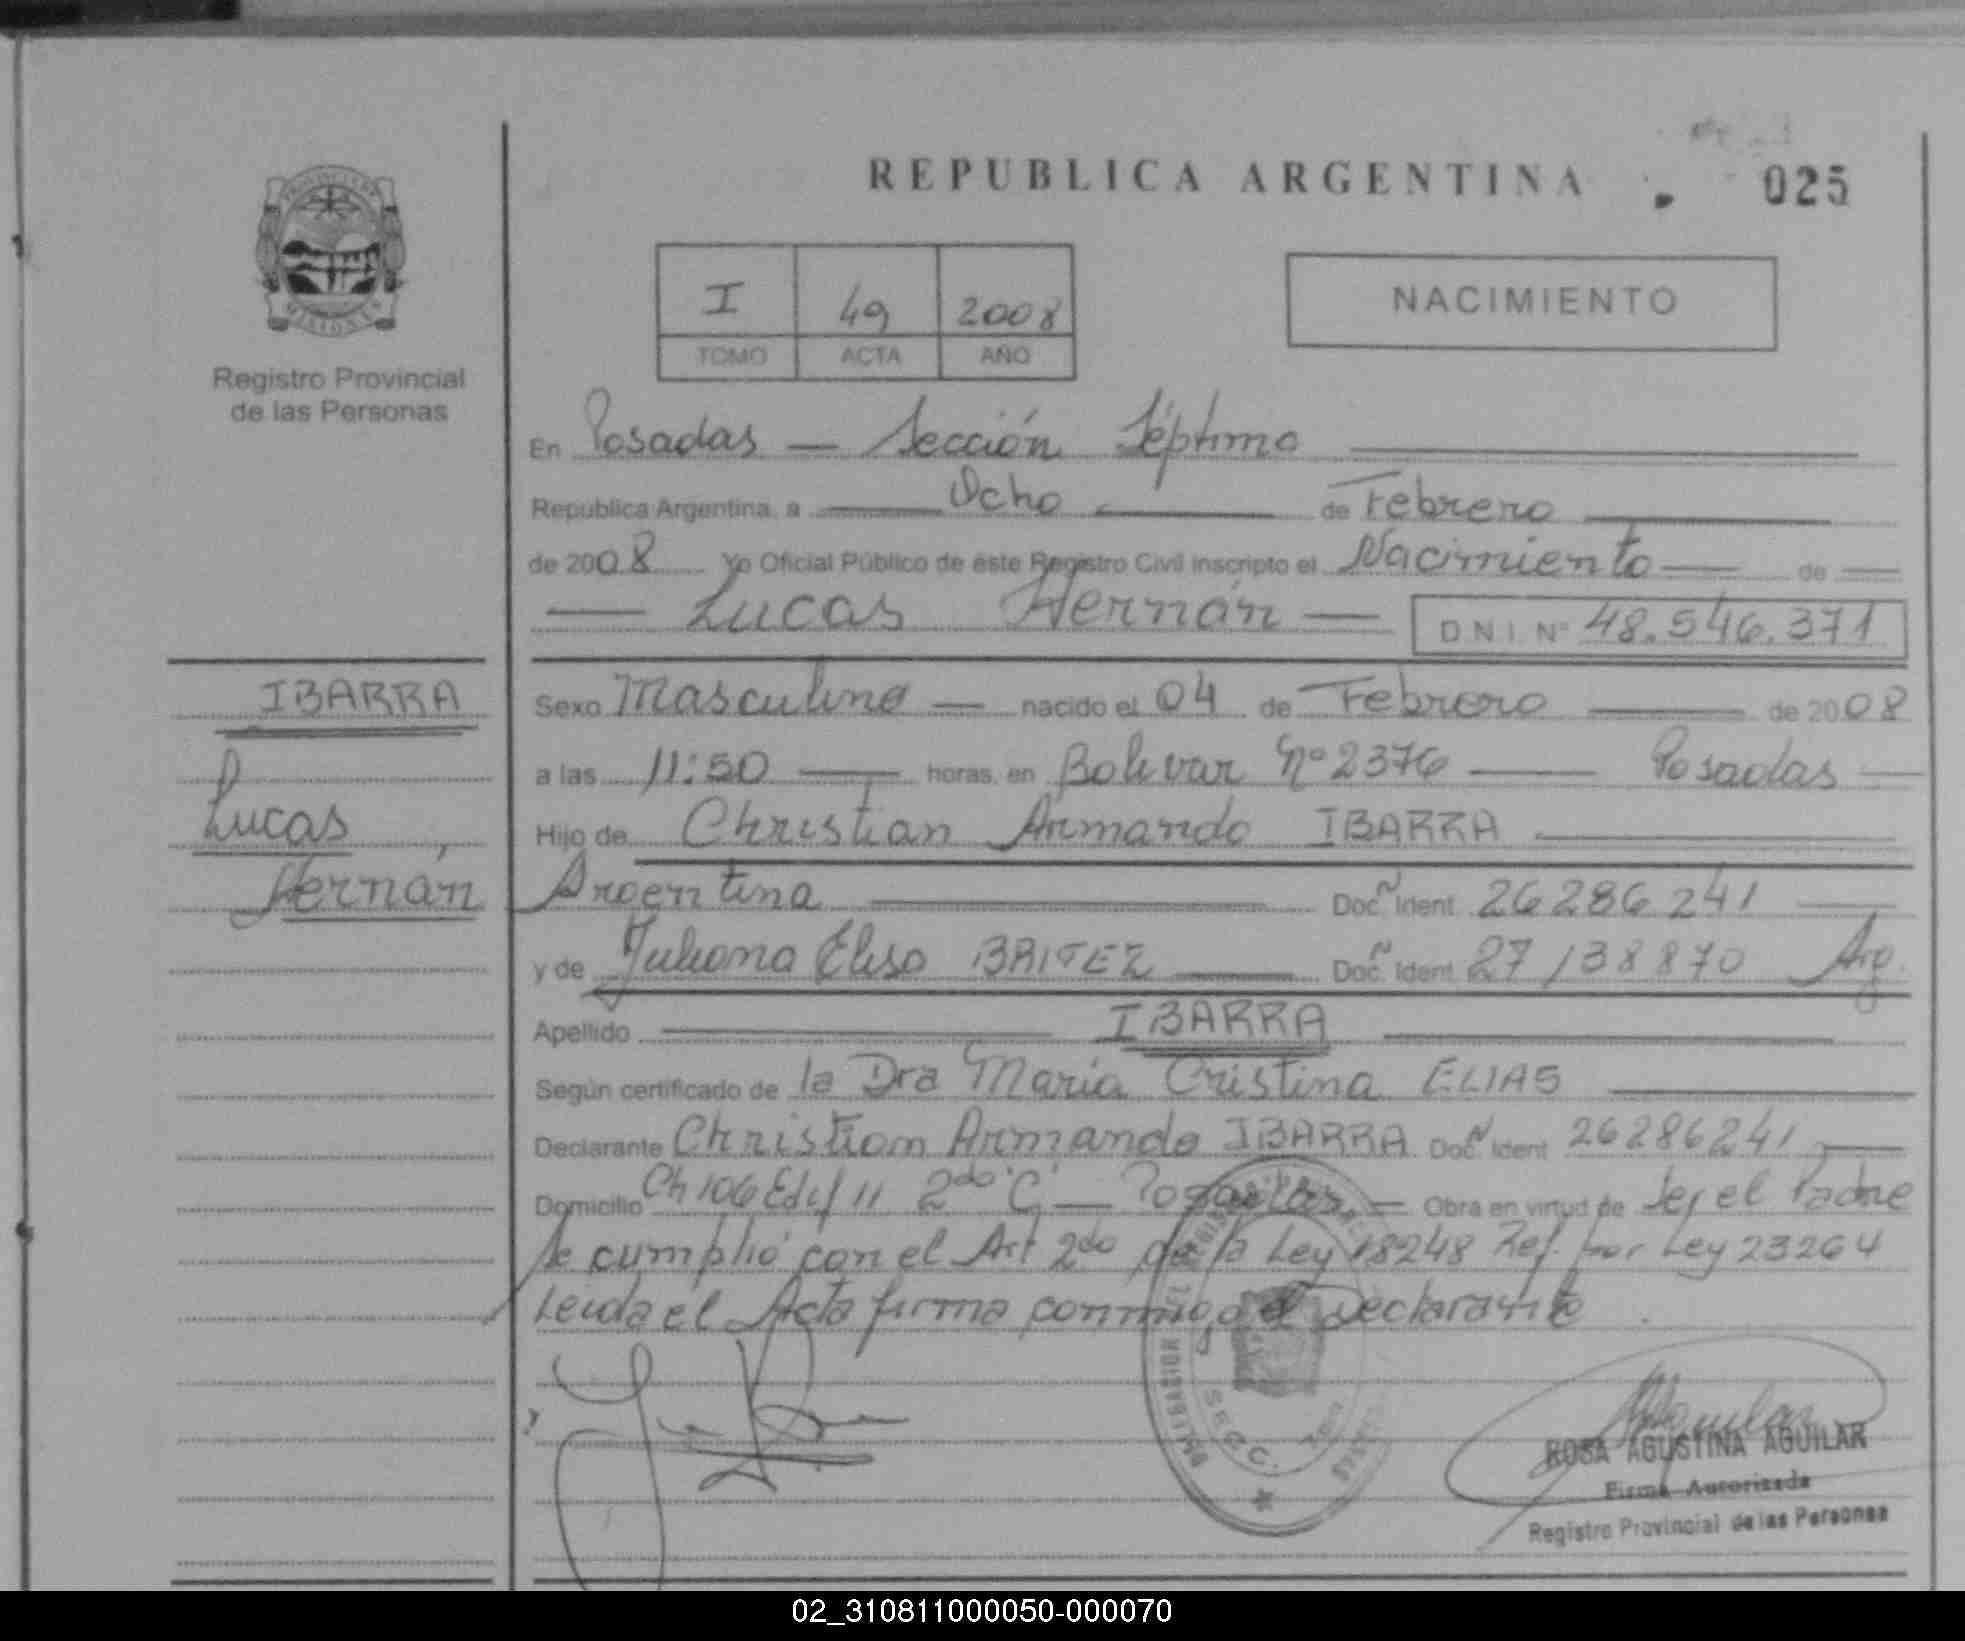 REPUBLICA ARGENTINA
025
PROVINCIA DE
MISIONES
Registro Provincial
de las Personas
I 49 2008
TOMO ACTA AÑO
NACIMIENTO
En Posadas — Sección Séptima
Republica Argentina, a Ocho de Febrero
de 2008 Yo Oficial Público de éste Registro Civil inscripto el Nacimiento — de —
— Lucas Hernán — D N I. Nº 48.546.371
IBARRA
Lucas
Hernán
Sexo Masculino — nacido el 04 de Febrero — de 2008
a las 11:50 — horas, en Bolivar Nº 2376 — Posadas —
Hijo de Christian Armando IBARRA
Argentina Doc. Ident. 26286241
y de Juliana Elisa BRITEZ Doc. Ident. 27138870 Arg.
Apellido IBARRA
Según certificado de la Dra Maria Cristina ELIAS
Declarante Christian Armando IBARRA Doc. Ident. 26286241
Domicilio Ch 106 Edif 11 2do "C" — Posadas — Obra en virtud de Ser el Padre
Se cumplió con el Art 2do de la Ley 18248 Ref. por Ley 23264
Leida el Acta firma conmigo el Declarante.
SECC. 7ma
ROSA AGUSTINA AGUILAR
Firma Autorizada
Registro Provincial de las Personas
02_310811000050-000070